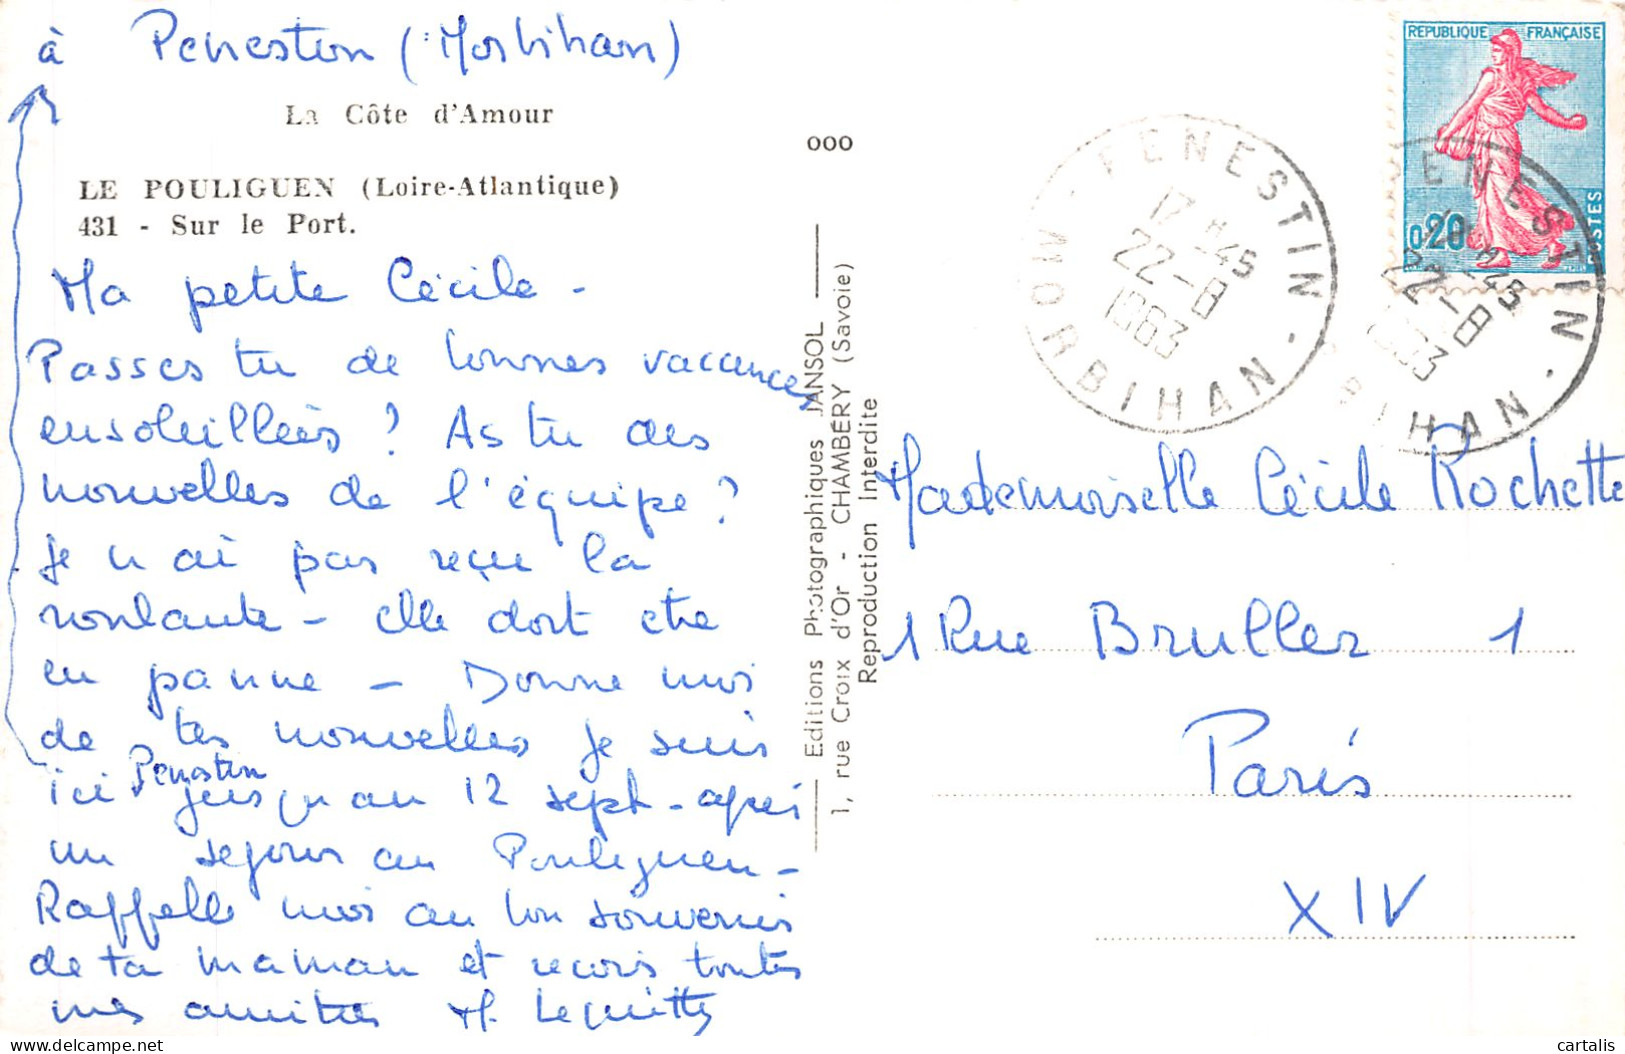 à Penestin (Morbihan)
La Côte d'Amour
LE POULIGUEN (Loire-Atlantique)
431 - Sur le Port.
Ma petite Cécile -
Passes tu de bonnes vacances
ensoleillées ? As tu des
nouvelles de l'équipe ?
Je n'ai pas reçu la
roulante - elle doit etre
en panne - Donne moi
de tes nouvelles je suis
Penestin
ici jusqu'au 12 sept - après
un sejour au Pouliguen -
Rappelle moi au bon souvenir
de ta maman et reçois toutes
mes amitiés M.
000
Editions Photographiques JANSOL
1, rue Croix d'Or - CHAMBÉRY (Savoie)
Reproduction Interdite
REPUBLIQUE FRANÇAISE
0,20
POSTES
PENESTIN
17H45
22-8
1963
MORBIHAN
ENESTIN
22-8
BIHAN
Mademoiselle Cécile Rochette
1 Rue Bruller 1
Paris
XIV
cartalis
delcampe.net